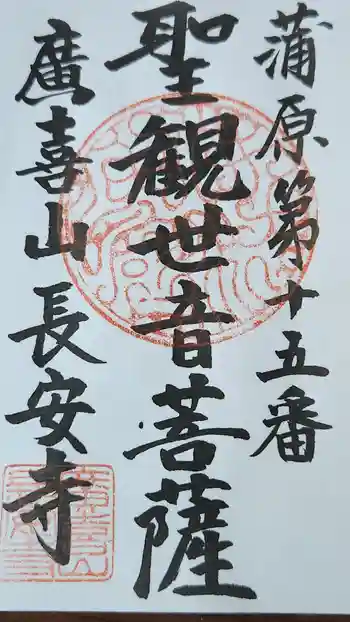 蒲原第十五番
聖観世音菩薩
廣喜山長安寺